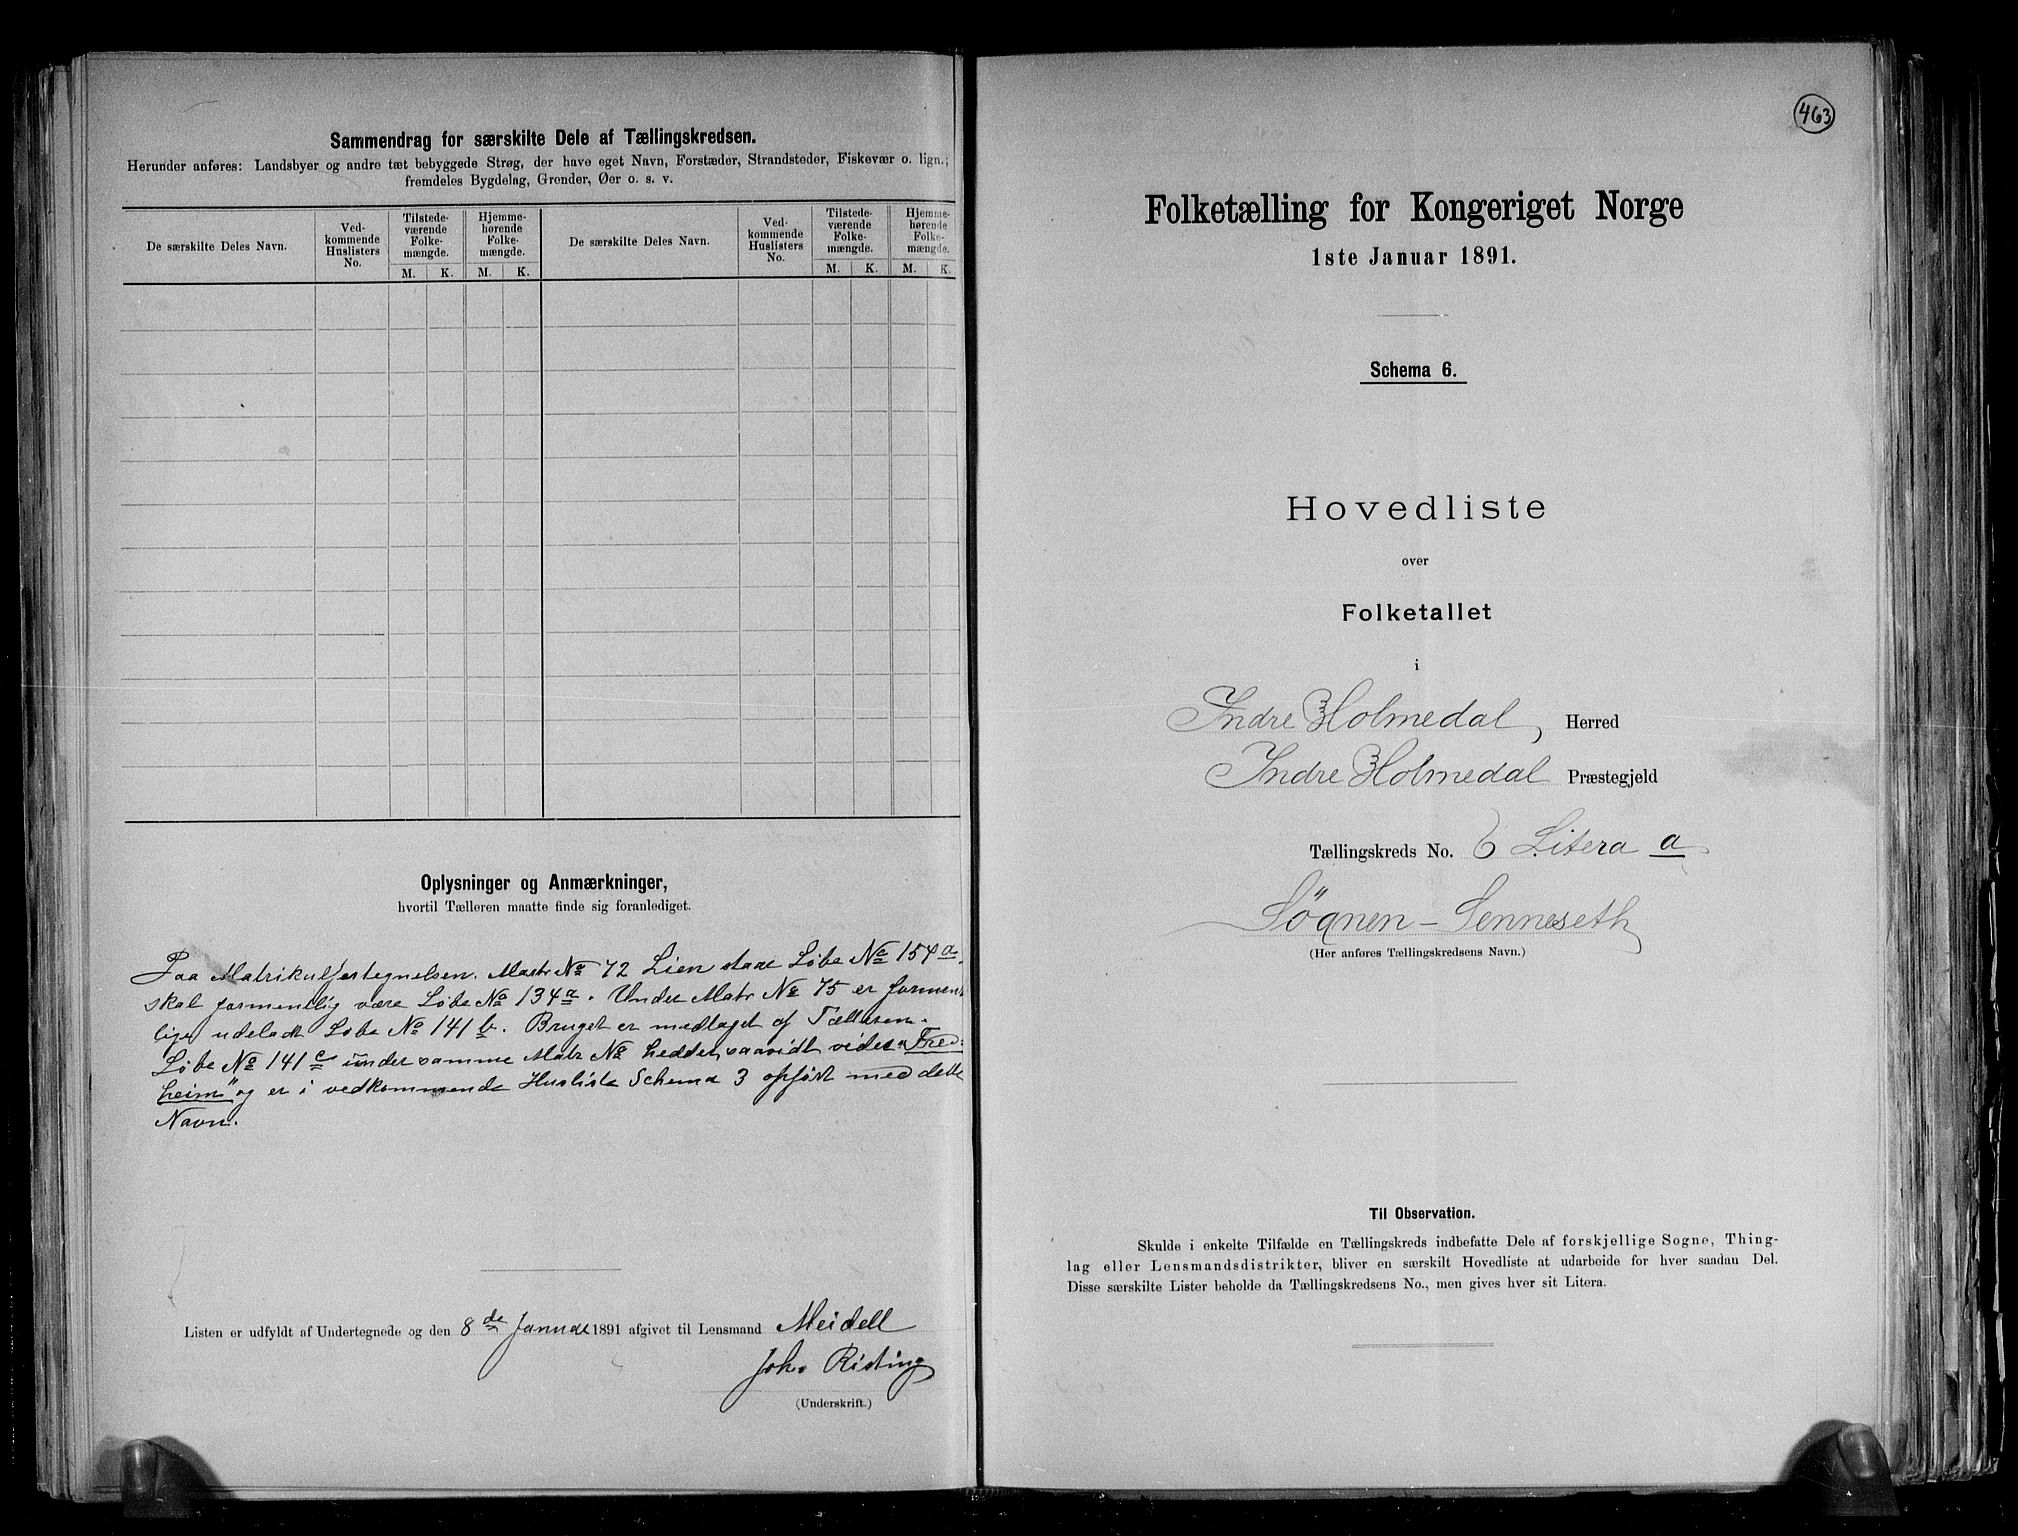 Sammendrag for særskilte Dele af Tællingskredsen.
Herunder anføres: Landsbyer og andre tæt bebyggede Strøg, der have eget Navn, Forstæder, Strandsteder, Fiskevær o. lign.;
fremdeles Bygdelag, Grender, Øer o. s. v.
De særskilte Deles Navn.
Ved-
kommende
Huslisters
No.
Tilstede-
værende
Folke-
mængde.
M. K.
Hjemme-
hørende
Folke-
mængde.
M. K.
De særskilte Deles Navn.
Ved-
kommende
Huslisters
No.
Tilstede-
værende
Folke-
mængde.
M. K.
Hjemme-
hørende
Folke-
mængde.
M. K.
Oplysninger og Anmærkninger,
hvortil Tælleren maatte finde sig foranlediget.
Paa Matrikulfortegnelsen. Matr No 72 Lien staar Løbe No 154a.
skal formentlig være Løbe No 134a. Under Matr No 75 er forment
lig udeladt Løbe No 141b. Bruget er medtaget af Tælleren.
Løbe No 141c under samme Matr No hedder, saavidt vides „Fred-
heim" og er i vedkommende Husliste Schema 3 opført med dette
Navn.
Listen er udfyldt af Undertegnede og den 8de Januar 1891 afgivet til Lensmand Meidell
Joh. Risting
(Underskrift.)
463
Folketælling for Kongeriget Norge
1ste Januar 1891.
Schema 6.
Hovedliste
over
Folketallet
i
Indre Holmedal, Herred
Indre Holmedal Præstegjeld
Tællingskreds No. 6 Litera a
Søgnen - Senneseth
(Her anføres Tællingskredsens Navn.)
Til Observation.
Skulde i enkelte Tilfælde en Tællingskreds indbefatte Dele af forskjellige Sogne, Thing-
lag eller Lensmandsdistrikter, bliver en særskilt Hovedliste at udarbeide for hver saadan Del.
Disse særskilte Lister beholde da Tællingskredsens No., men gives hver sit Litera.